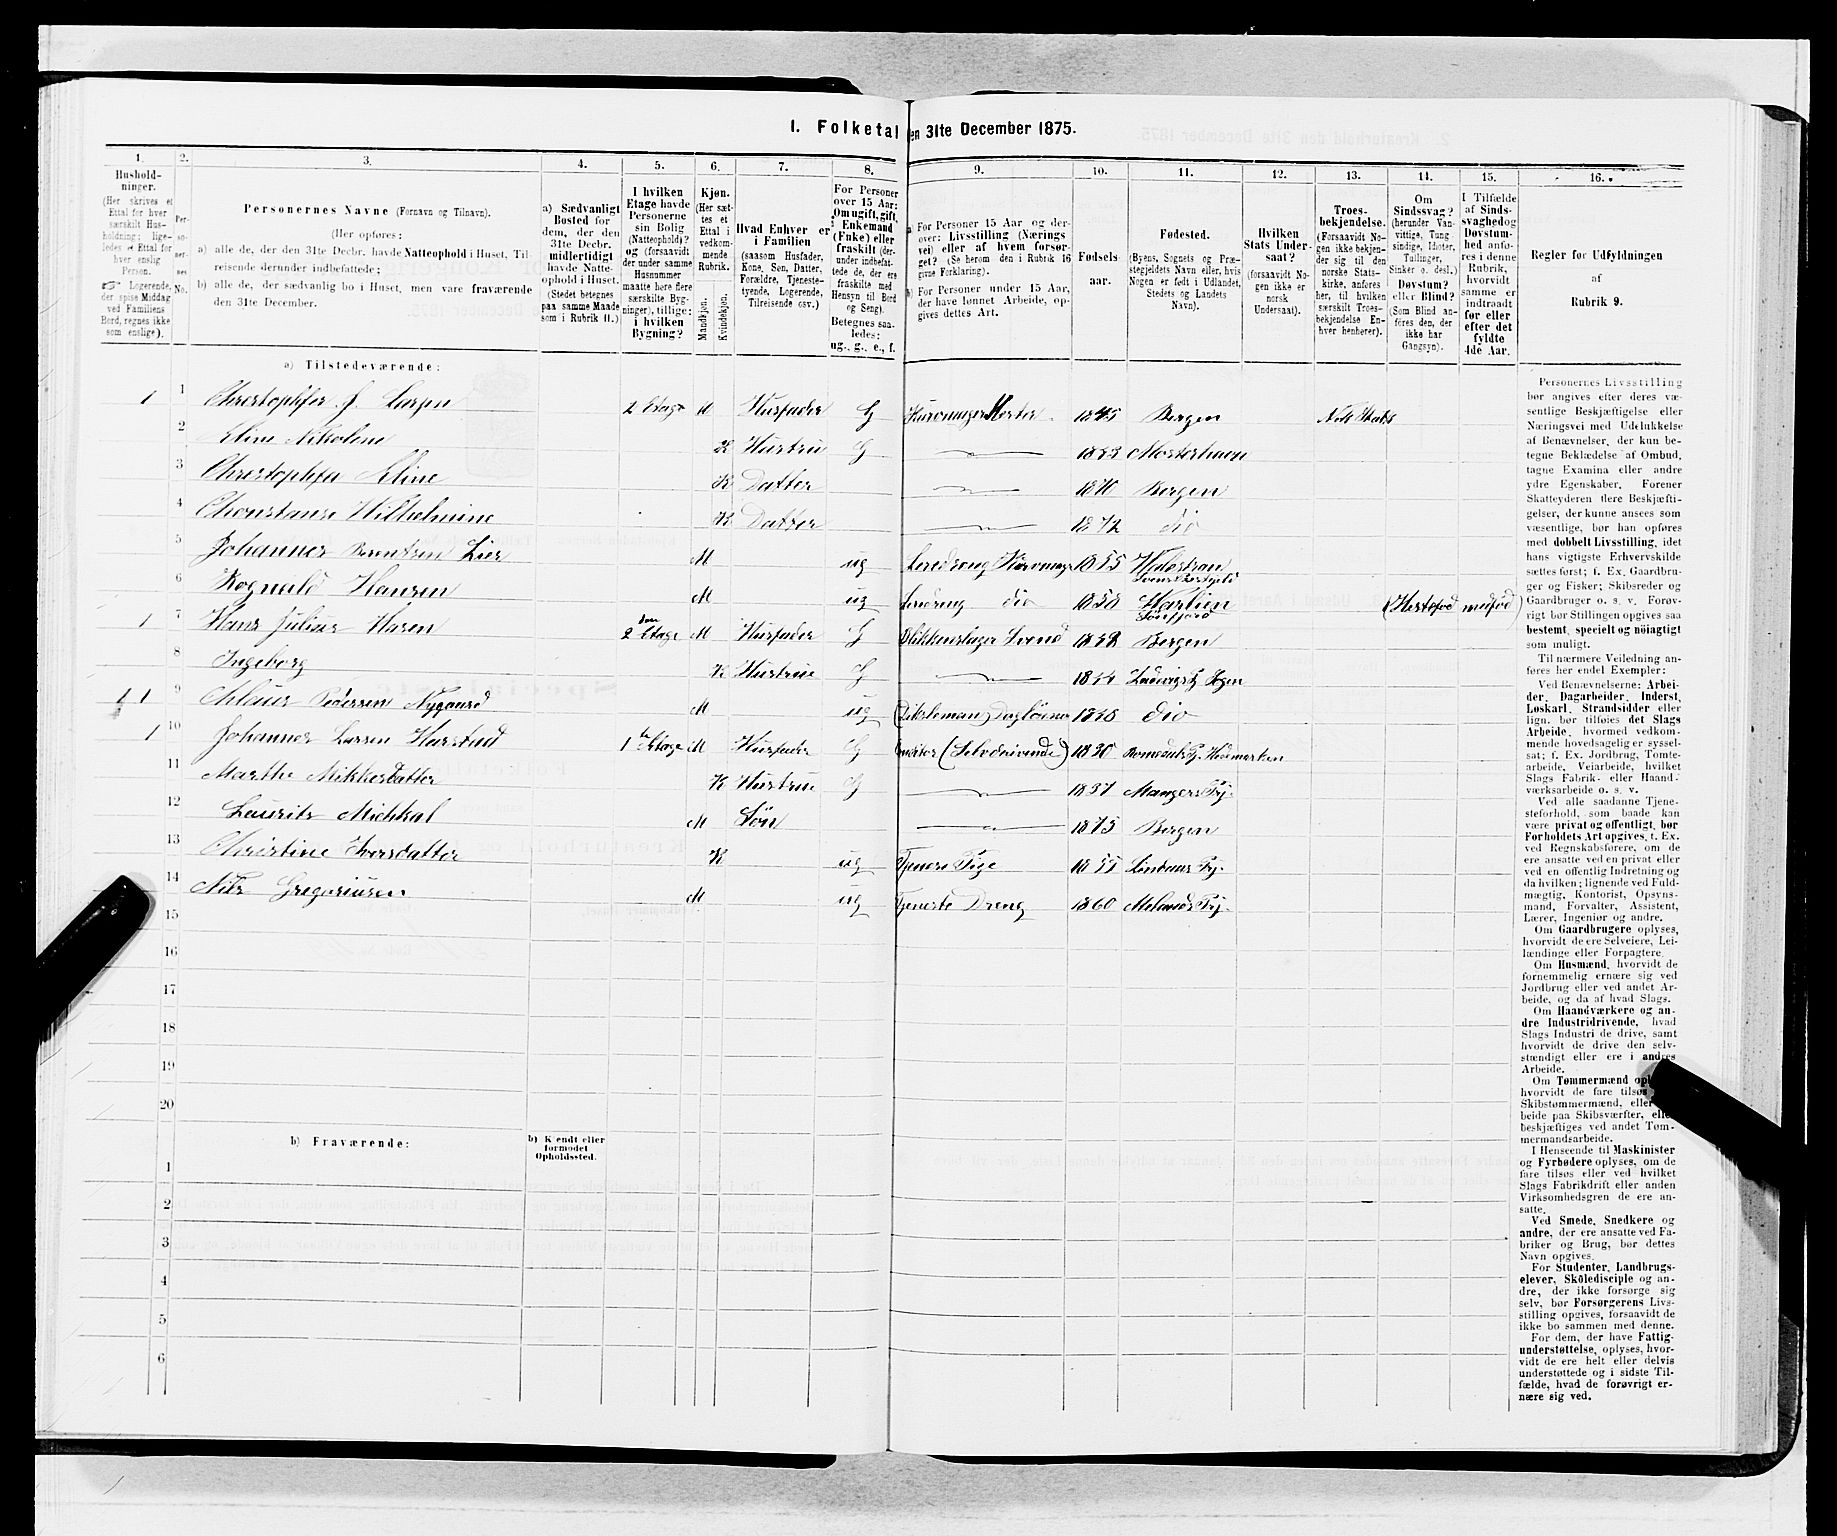 1. Folketal den 31te December 1875.
1. 2. 3. 4. 5. 6. 7. 8. 9. 10. 11. 12. 13. 14. 15. 16.
Hushold-
ninger.
(Her skrives et
Ettal for hver
særskilt Hus-
holdning; lige-
ledes et Ettal for
hver enslig
Person.
Logerende,
der spise Middag
ved Familiens
Bord, regnes ikke
som enslige).
Per-
so-
ner-
nes
No.
Personernes Navne (Fornavn og Tilnavn).
(Her opføres:
a) alle de, der den 31te Decbr. havde Natteophold i Huset, Til-
reisende derunder indbefattede;
b) alle de, der sædvanlig bo i Huset, men vare fraværende
den 31te December.
a) Sædvanligt
Bosted for
dem, der den
31te Decbr.
midlertidigt
havde Natte-
ophold i Huset.
(Stedet betegnes
paa samme Maade
som i Rubrik 11.)
I hvilken
Etage havde
Personerne
sin Bolig
(Natteophold)?
og (forsaavidt
der under samme
Husnummer
maatte høre flere
særskilte Byg-
ninger), tillige:
i hvilken
Bygning?
Kjøn.
(Her sæt-
tes et
Ettal i
vedkom-
mende
Rubrik.
Mandkjøn.
Kvindekjøn.
Hvad Enhver er
i Familien
(saasom Husfader,
Kone, Søn, Datter,
Forældre, Tjeneste-
tyende, Logerende,
Tilreisende osv.)
For Personer
over 15 Aar:
Om ugift, gift,
i Enkemand
(Enke) eller
fraskilt (der-
under indbefat-
tede de, der ere
fraskilte med
Hensyn til Bord
og Seng).
Betegnes saa-
ledes:
ug., g., e., f.
a) For Personer 15 Aar og der-
over: Livsstilling (Nærings
vei) eller af hvem forsør-
get? (Se herom den i Rubrik 16
givne Forklaring).
b) For Personer under 15 Aar,
der have lønnet Arbeide, op-
gives dettes Art.
Fødsels-
aar.
Fødested.
(Byens, Sognets og Præ-
stegjeldets Navn eller, hvis
Nogen er født i Udlandet,
Stedets og Landets
Navn).
Hvilken
Stats Under-
saat?
(forsaavidt No-
gen ikke er
norsk
Undersaat).
Troes-
bekjendelse.
(Forsaavidt No-
gen ikke bekjen-
der sig til den
norske Stats-
kirke, anføres
her, til hvilken
særskilt Troes-
bekjendelse En-
hver henhører).
Om
Sindssvag?
(herunder Van-
vittige, Tung
sindige, Idioter,
Tullinger,
Sinker o. desl.)
Døvstum?
eller Blind?
(Som Blind an-
føres den, der
ikke har
Gangsyn).
I Tilfælde
af Sinds-
svaghed og
Døvstum-
hed anfø-
res i denne
Rubrik,
hvorvidt
samme er
indtraadt
før eller
efter det
fyldte
4de Aar.
Regler for Udfyldningen
af
Rubrik 9.
a) Tilstedeværende:
1 1 Christophfer J. 2 Etage M Husfader G 1845 Bergen
2 Eline Nikolene K Hustru G 1843 Mosterhavn
3 Christophfa Eline K Datter 1870 Bergen
4 Wilhelmine K Datter 1872 dio
5 Johannes Berentsen Lier M ug 1855
6 Rognald Hansen M ug dio 1858 (Hestefod medfød)
1 7 Hans Julius Hasen 2 den Etage M Husfader G Blikkenslager Svend 1848 Bergen
8 Ingeborg K Hustrue G 1844
1 1 9 Pedersen Nygaard M ug dio
1 10 Johannes Larsen Harstad 1 Etage M Husfader G (Selvdrivende) 1830 Hedemarken
11 Marthe Mikkesdatter K Hustrue G 1837 Mangers Pj.
12 Laurits Michkal M Søn 1875 Bergen
13 Christine Iversdatter K ug Tjeneste Pige 1855 Lindaas Pj.
14 Nils Gregoriusen M ug Tjeneste Dreng 1860 Melands Pj.
15
16
17
18
19
20
b) Fraværende:
b) Kjendt eller
formodet
Opholdssted.
1
2
3
4
5
6
Personernes Livsstilling
bør angives efter deres væ-
sentlige Beskjæftigelse eller
Næringsvei med Udelukkelse
af Benævnelser, der kun be-
tegne Beklædelse af Ombud,
tagne Examina eller andre
ydre Egenskaber. Forener
Skatteyderen flere Beskjæfti-
gelser, der kunne ansees som
væsentlige, bør han opføres
med dobbelt Livsstilling, idet
hans vigtigste Erhvervskilde
sættes først; f. Ex. Gaardbru-
ger og Fisker; Skibsreder og
Gaardbruger o. s. v. Forøv-
rigt bør Stillingen opgives saa
bestemt, specielt og nöiagtigt
som muligt.
Til nærmere Veiledning an-
føres her endel Exempler:
Ved Benævnelserne: Arbei-
der, Dagarbeider, Inderst,
Løskarl, Strandsidder eller
lign. bør tilføies det Slags
Arbeide, hvormed vedkom-
mende hovedsagelig er syssel-
sat; f. Ex. Jordbrug, Tomte-
arbeide, Veiarbeide, hvilket
Slags Fabrik- eller Haand-
værksarbeide o. s. v.
Ved alle saadanne Tjene-
steforhold, som baade kan
være privat og offentligt, bør
Forholdets Art opgives, t. Ex.
ved Regnskabsførere, om de
ere ansatte ved en privat eller
ved en offentlig Indretning og
da hvilken; lignende ved Fuld-
mægtig, Kontorist, Opsyns-
mand, Forvalter, Assistent,
Lærer, Ingeniør og andre.
Om Gaardbrugere oplyses,
hvorvidt de ere Selveiere, Lei-
lændinge eller Forpagtere.
Om Husmænd, hvorvidt de
fornemmelig ernære sig ved
Jordbrug eller ved andet Ar-
beide, og da af hvad Slags.
Om Haandværkere og an-
dre Industridrivende, hvad
Slags Industri de drive, samt
hvorvidt de drive den selv-
stændigt eller ere i andres
Arbeide.
Om Tømmermænd
hvorvidt de fare tilsøs
Skibstømmermænd, eller
beide paa Skibsværfter, eller
beskjæftiges ved andet Tøm-
mermandsarbeide.
I Henseende til Maskinister
og Fyrbødere oplyses, om de
fare tilsøs eller ved hvilket
Slags Fabrikdrift eller anden
Virksomhedsgren de ere an-
satte.
Ved Smede, Snedkere og
andre, der ere ansatte ved Fa-
briker og Brug, bør dettes
Navn opgives.
For Studenter, Landbrugs-
elever, Skõledisciple og an-
dre, der ikke forsørge sig
selv, bør Forsørgerens Livs-
stilling opgives, forsaavidt de
ikke bo sammen med denne.
For dem, der have Fattig-
understøttelse, oplyses, hvor-
vidt de ere helt eller delvis
understøttede og i sidste Til-
fælde, hvad de forøvrigt er-
nære sig ved.